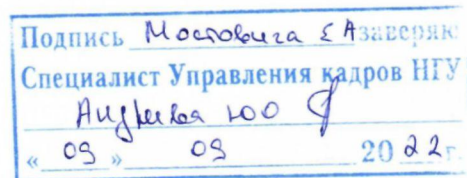 Подпись Мостовича Е А заверяю
Специалист Управления кадров НГУ
Андреева ЮО
« 09 » 09 2022 г.